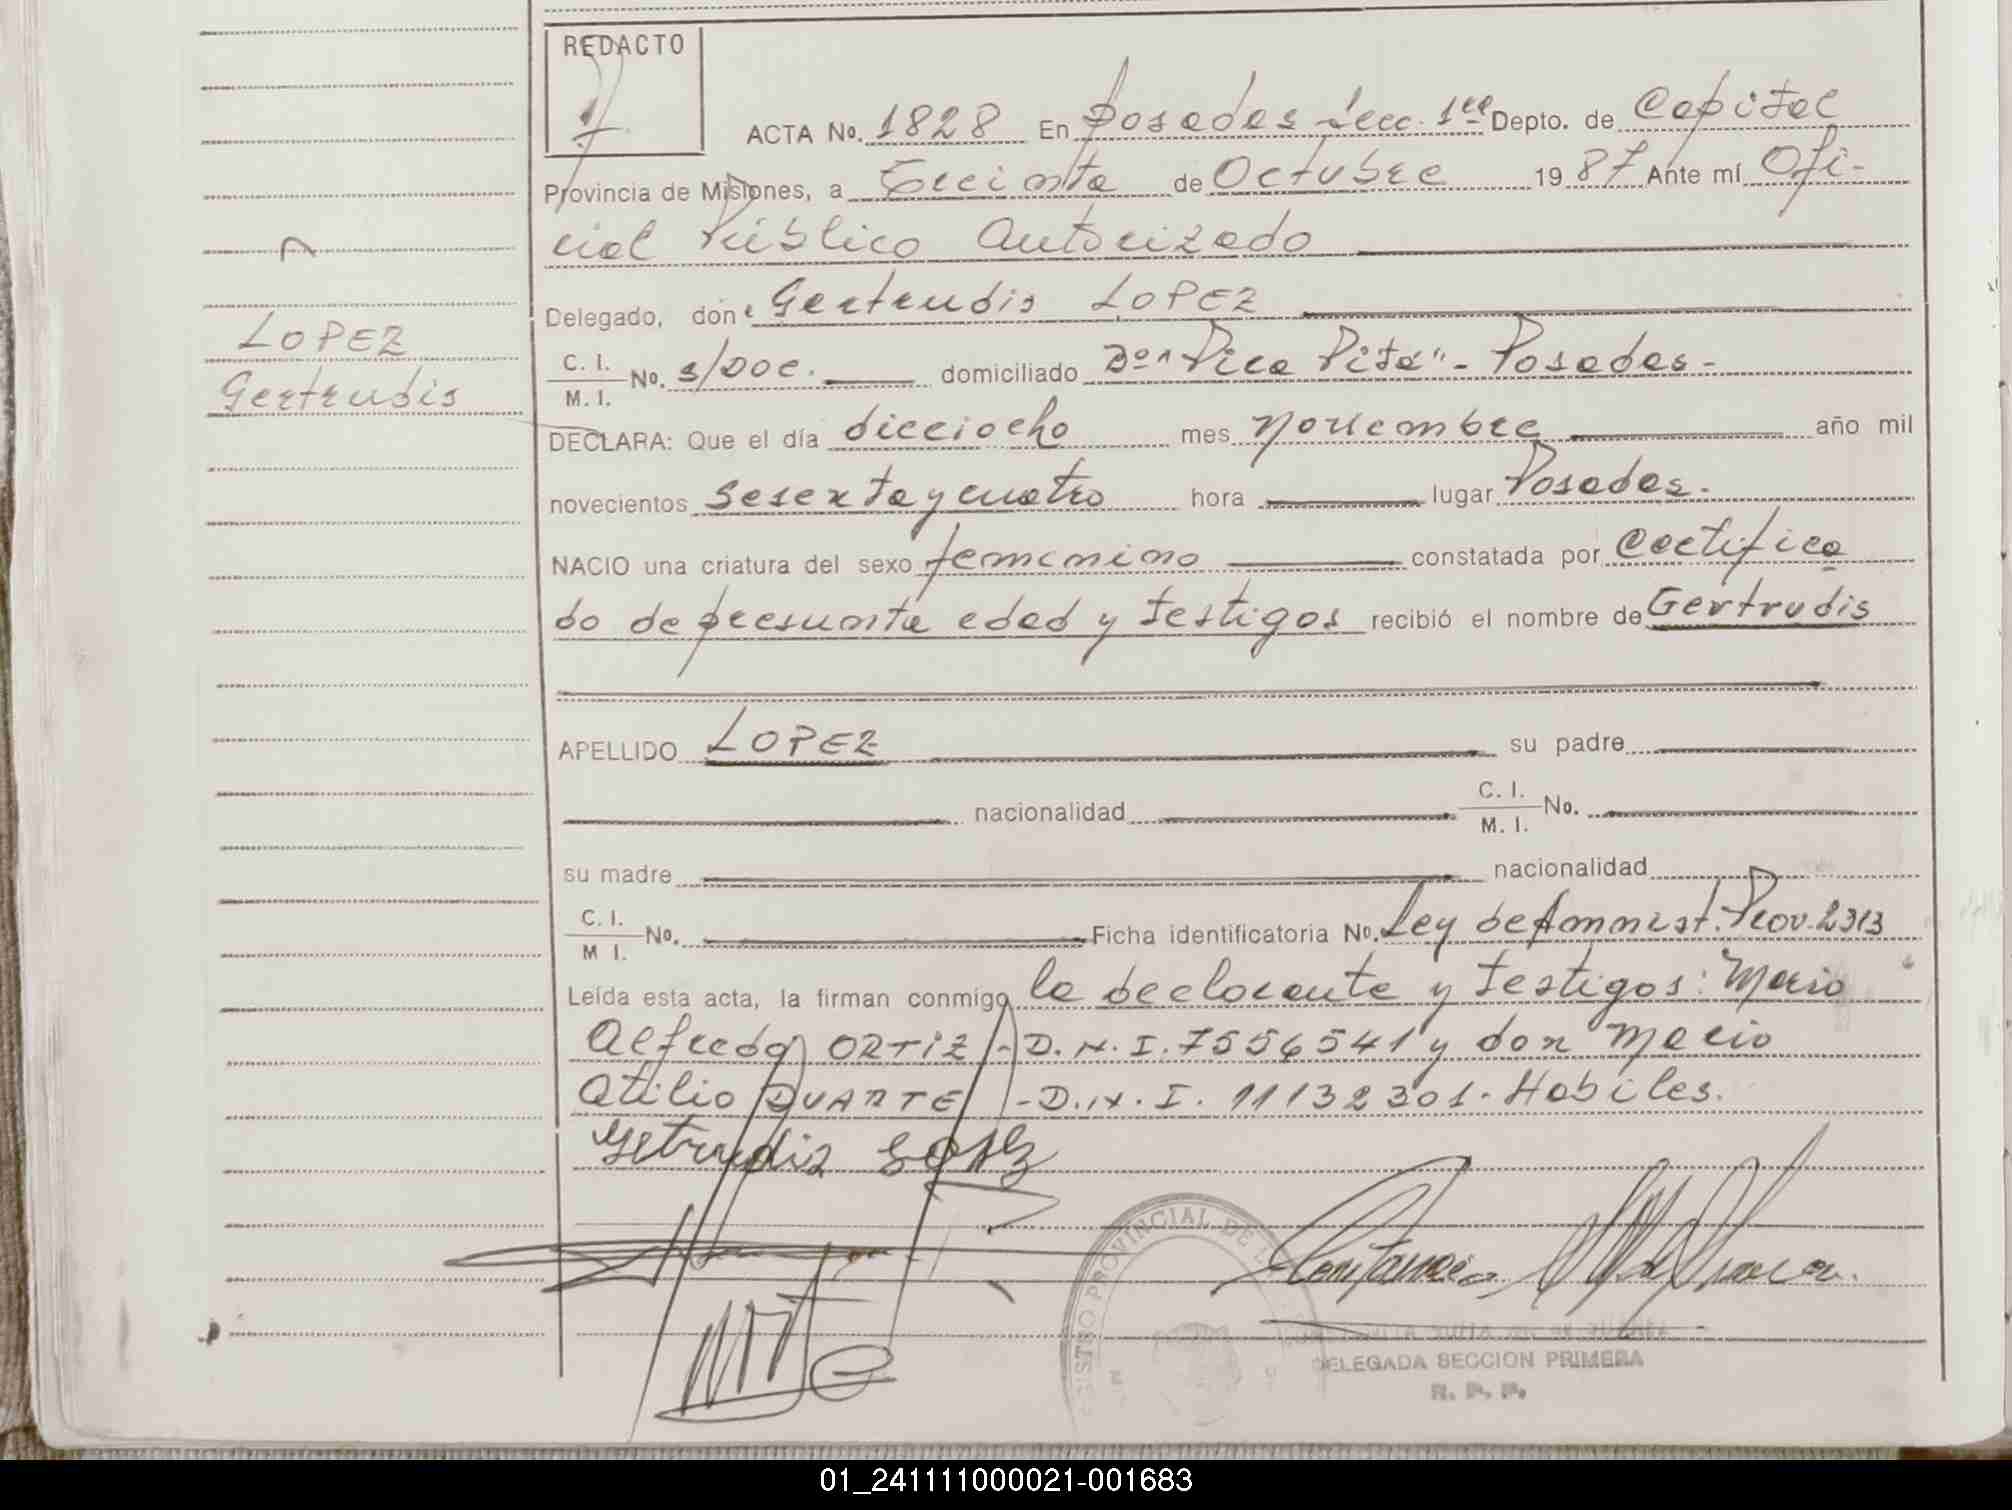 REDACTO
ACTA No. 1828 En Posadas Secc. 1ra Depto. de Capital
Provincia de Misiones, a Treinta de Octubre 1987 Ante mí Ofi-
cial Público Autorizado
Delegado, don Gertrudis LOPEZ
C. I. M. I. No. s/DOC. domiciliado Bo "Villa Pita" - Posadas-
LOPEZ
Gertrudis
DECLARA: Que el día dieciocho mes noviembre año mil
novecientos sesenta y cuatro hora lugar Posadas.
NACIO una criatura del sexo femenino constatada por Certifica
do de presunta edad y testigos recibió el nombre de Gertrudis
APELLIDO LOPEZ su padre
nacionalidad C. I. M. I. No.
su madre nacionalidad
C. I. M I. No. Ficha identificatoria No. Ley de Amnist. Prov. 2313
Leída esta acta, la firman conmigo la declarante y testigos: Mario
Alfredo ORTIZ - D.N.I. 7556541 y don Mario
Atilio DUARTE - D.N.I. 11132301. Habiles.
DELEGADA SECCION PRIMERA
R. P. P.
01_241111000021-001683